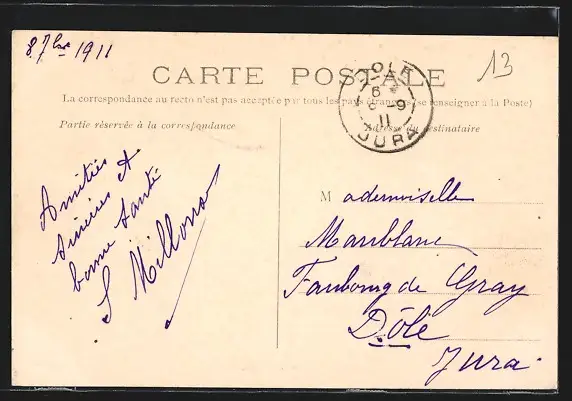 8 7bre 1911
CARTE POSTALE
13
La correspondance au recto n'est pas acceptée par tous les pays étrangers (se renseigner à la Poste)
Partie réservée à la correspondance
Adresse du destinataire
DOLE
9
11
JURA
Amitiés
sincères et
bonne santé
S Millons
Mademoiselle
Manblanc
Faubourg de Gray
Dôle
Jura